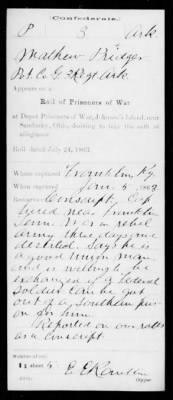 (Confederate.)
P 3 Ark
Mathew Bridges
Pvt. Co. G. 3 Regt Ark.
Appears on a
Roll of Prisoners of War
at Depot Prisoners of War, Johnson's Island, near
Sandusky, Ohio, desiring to take the oath of
allegiance.
Roll dated July 24, 1863.
Where captured Franklin, Ky
When captured Jan. 5, 1863.
Remarks: Conscript, Cap
tured near Franklin
Tenn. Was in rebel
army three days and
deserted. Says he is
a good union man
and is willing to be
exchanged if a Federal
soldier can be got
out of a Southern pris
on for him.
Reported on our rolls
as a conscript
Number of roll:
sheet
Copyist.